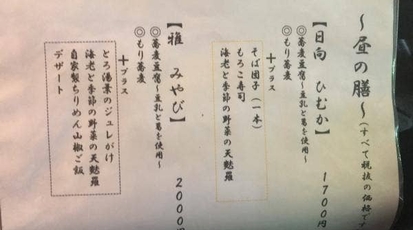 〜昼の膳〜(すべて税抜の価格です
【日向 ひむか】 1700円
◎蕎麦豆腐〜豆乳と葛を使用〜
◎もり蕎麦
＋プラス
そば団子(一本)
もろこ寿司
海老と季節の野菜の天麩羅
【雅 みやび】 2000円
◎蕎麦豆腐〜豆乳と葛を使用〜
◎もり蕎麦
＋プラス
とろ湯葉のジュレがけ
海老と季節の野菜の天麩羅
自家製ちりめん山椒ご飯
デザート